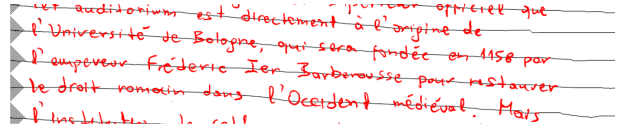 cet auditorium est officiel que
directement à l'origine de
l'Université de Bologne, qui sera fondée en 1158 par
l'empereur Fréderic Ier Barberousse pour restaurer
le droit romain dans l'Occident médiéval. Mais